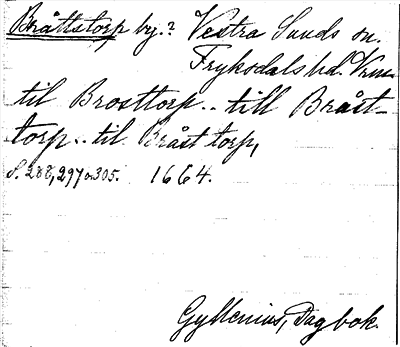 Bråttstorp by.? Vestra Sunds sn.
Fryksdals hd. Vrm.
til Brosttorp.. till Bråst-
torp.. til Bråst torp,
s. 288, 297 o. 305. 1664.
Gyllenius, Dagbok.